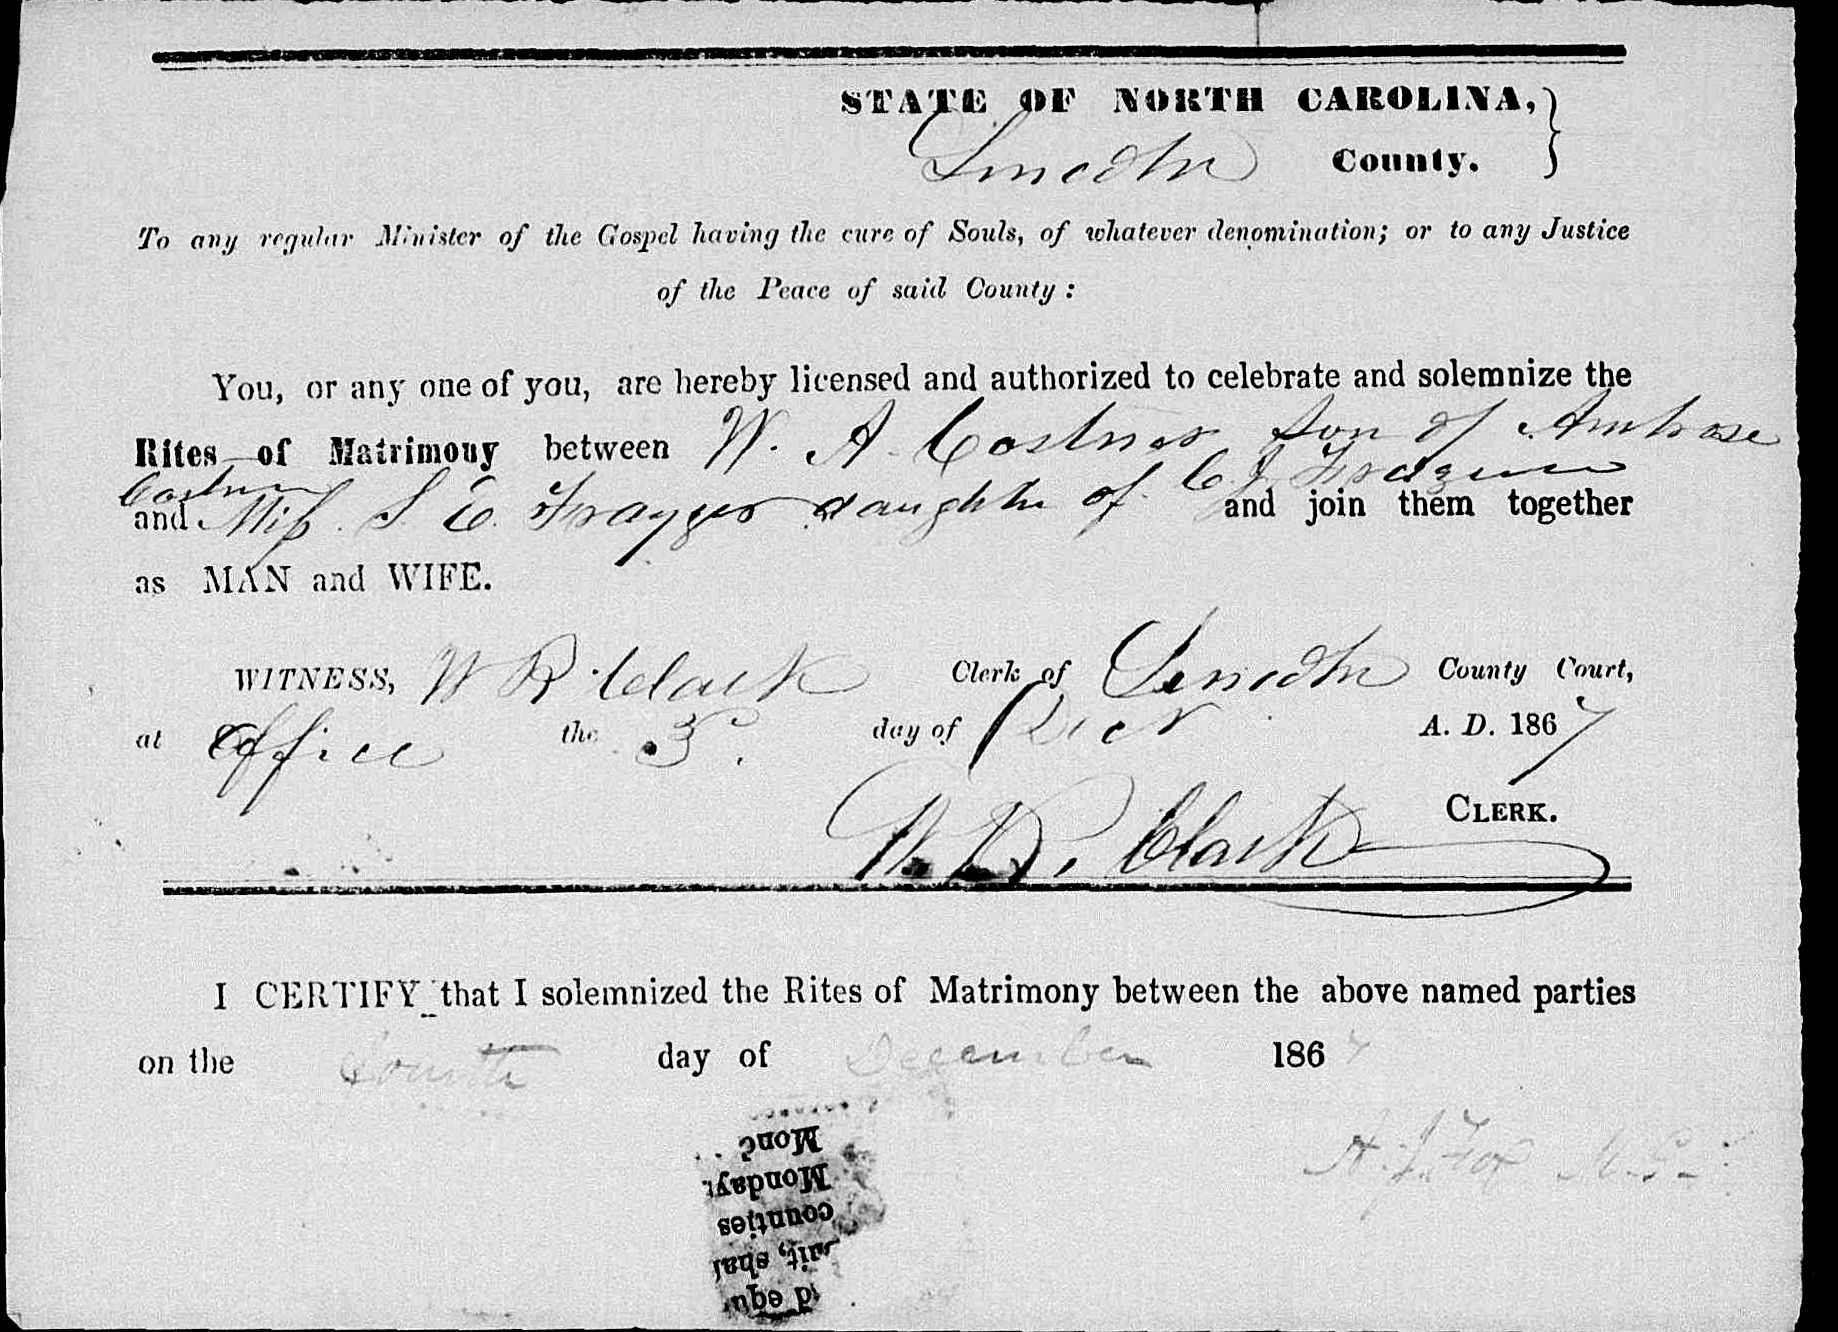 STATE OF NORTH CAROLINA,
Lincoln County.
To any regular Minister of the Gospel having the cure of Souls, of whatever denomination; or to any Justice
of the Peace of said County:
You, or any one of you, are hereby licensed and authorized to celebrate and solemnize the
Rites of Matrimony between W. A. Costner Son of Ambrose
Costner
and Miss S E Frayger daughter of C J and join them together
as MAN and WIFE.
WITNESS, W R Clark Clerk of Lincoln County Court,
at Office the 3. day of Dec A. D. 1867
W. R. Clark CLERK.
I CERTIFY that I solemnized the Rites of Matrimony between the above named parties
on the fourth day of December 1867
A. J. Fox M. G.
Mond
Monday
counties
uit, shal
d equ